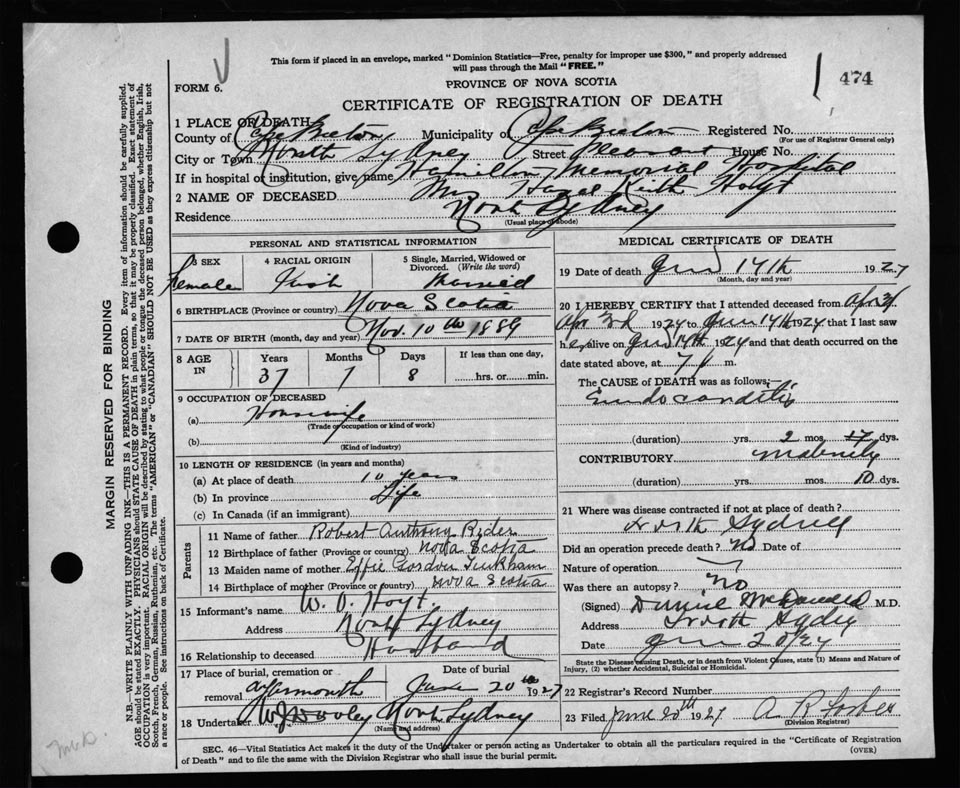 This form if placed in an envelope, marked "Dominion Statistics—Free, penalty for improper use $300," and properly addressed
will pass through the Mail "FREE."
474
FORM 6.
PROVINCE OF NOVA SCOTIA
CERTIFICATE OF REGISTRATION OF DEATH
1 PLACE OF DEATH
County of Cape Breton Municipality of Cape Breton Registered No.
(For use of Registrar General only)
City or Town North Sydney Street Pleasant House No.
If in hospital or institution, give name Hamilton Memorial Hospital
2 NAME OF DECEASED Mrs Hazel Ruth Hoyt
Residence North Sydney
(Usual place of abode)
PERSONAL AND STATISTICAL INFORMATION
3 SEX 4 RACIAL ORIGIN 5 Single, Married, Widowed or Divorced. (Write the word)
Female Irish Married
6 BIRTHPLACE (Province or country) Nova Scotia
7 DATE OF BIRTH (month, day and year) Nov. 10th 1889
8 AGE IN Years Months Days If less than one day,
37 7 8 hrs. or min.
9 OCCUPATION OF DECEASED
(a) Housewife
(Trade or occupation or kind of work)
(b)
(Kind of industry)
10 LENGTH OF RESIDENCE (in years and months)
(a) At place of death 10 years
(b) In province Life
(c) In Canada (if an immigrant)
Parents
11 Name of father Robert Anthony Rider
12 Birthplace of father (Province or country) Nova Scotia
13 Maiden name of mother Effie Gordon Tinkham
14 Birthplace of mother (Province or country) Nova Scotia
15 Informant's name W. O. Hoyt
Address North Sydney
16 Relationship to deceased Husband
17 Place of burial, cremation or removal Date of burial
Yarmouth June 20th 1927
18 Undertaker W J Dooley North Sydney
(Name and address)
MEDICAL CERTIFICATE OF DEATH
19 Date of death 1927
(Month, day and year)
20 I HEREBY CERTIFY that I attended deceased from
that I last saw
her alive on and that death occurred on the
date stated above, at 7 m.
The CAUSE of DEATH was as follows:—
Endocarditis
(duration) yrs. 2 mos. 17 dys.
CONTRIBUTORY
(duration) yrs. mos. 10 dys.
21 Where was disease contracted if not at place of death?
North Sydney
Did an operation precede death? No Date of
Nature of operation
Was there an autopsy? No
(Signed) M.D.
Address North Sydney
Date
State the Disease causing Death, or in death from Violent Causes, state (1) Means and Nature of
Injury, (2) whether Accidental, Suicidal or Homicidal.
22 Registrar's Record Number
23 Filed June 20th 1927
(Division Registrar)
SEC. 46—Vital Statistics Act makes it the duty of the Undertaker or person acting as Undertaker to obtain all the particulars required in the "Certificate of Registration
of Death" and to file the same with the Division Registrar who shall issue the burial permit.
(OVER)
MARGIN RESERVED FOR BINDING
N.B.—WRITE PLAINLY WITH UNFADING INK—THIS IS A PERMANENT RECORD. Every item of information should be carefully supplied.
AGE should be stated EXACTLY. PHYSICIANS should STATE CAUSE OF DEATH in plain terms, so that it may be properly classified. Exact statement of
OCCUPATION is very important. RACIAL ORIGIN will be described by stating to what people or tongue the deceased person belonged, whether English, Irish,
Scotch, French, German, Russian, Ruthenian, etc. The terms "AMERICAN" or "CANADIAN" SHOULD NOT BE USED as they express citizenship but not
a race or people. See instructions on back of Certificate.